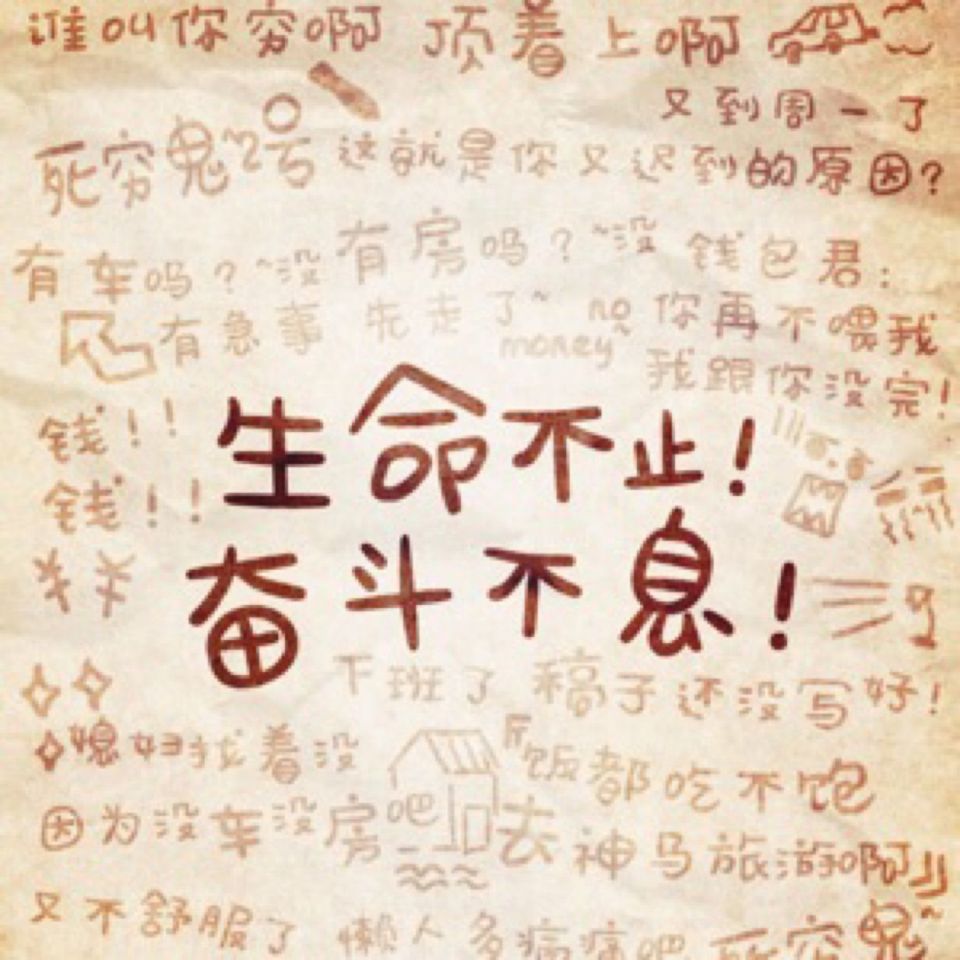 谁叫你穷啊 顶着上啊
又到周一了
死穷鬼~2号 这就是你又迟到的原因?
有车吗?~没有房吗?~没 钱包君:
有急事 先走了~ no money 你再不喂我
我跟你没完!
钱!!
钱!!
¥¥
生命不止!
奋斗不息!
下班了 稿子还没写好!
媳妇找着没
饭都吃不饱
因为没车没房吧
去神马旅游啊!!
又不舒服了 懒人多病痛吧 死穷鬼~